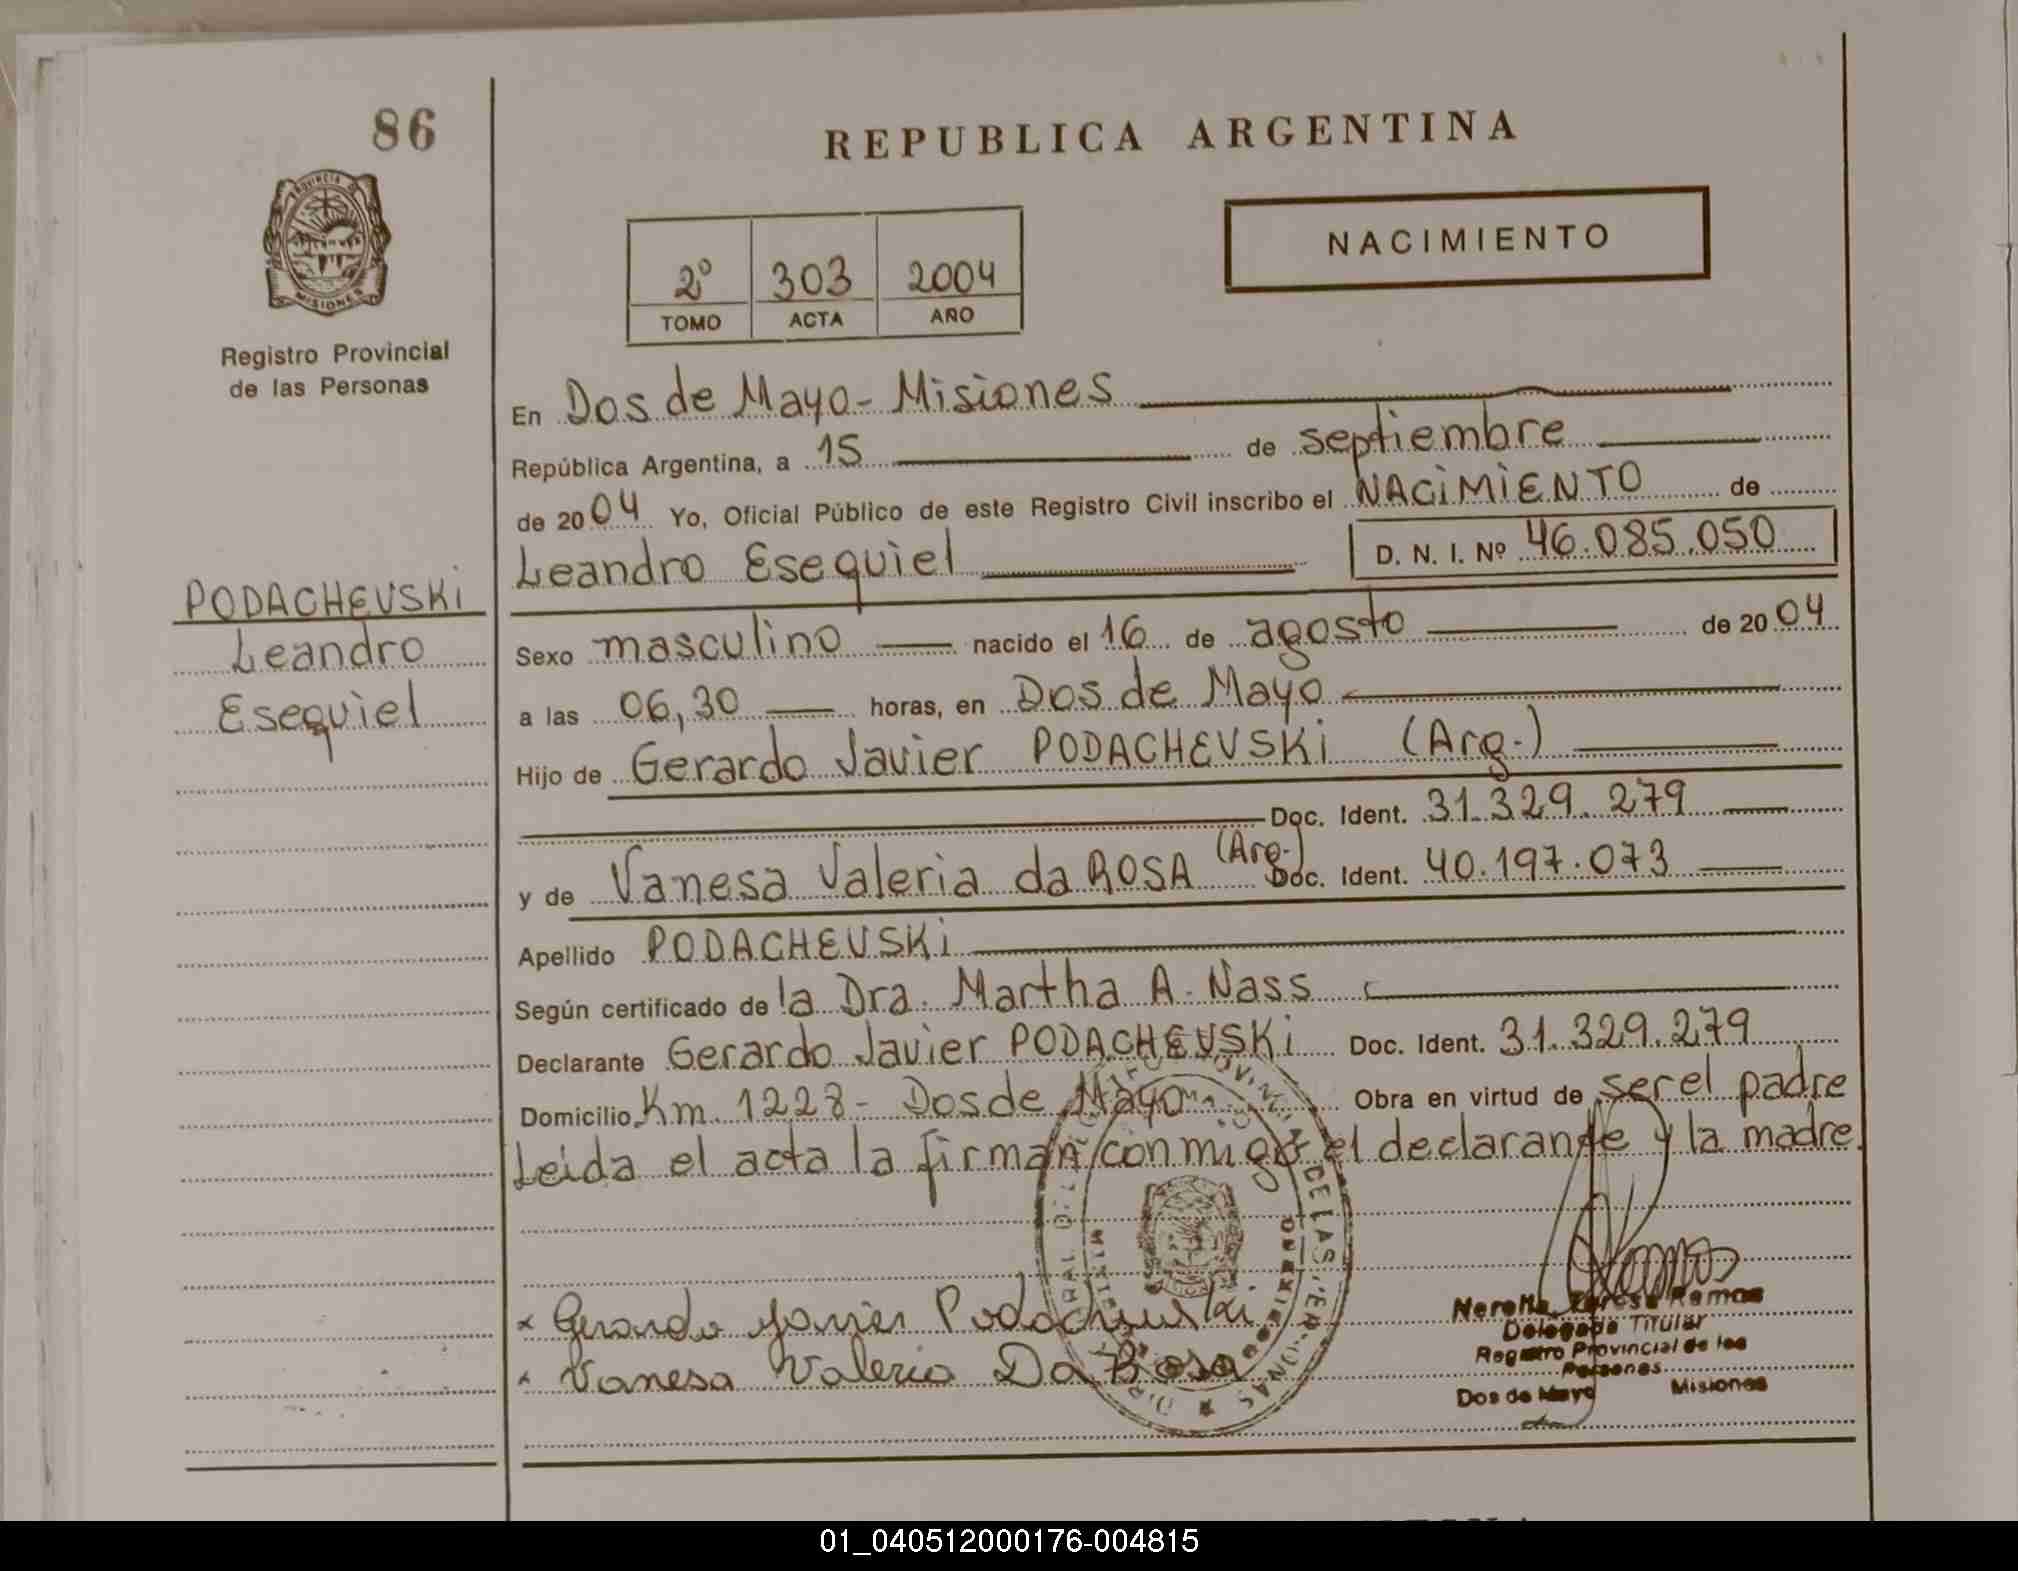 86
REPUBLICA ARGENTINA
PROVINCIA DE
MISIONES
Registro Provincial
de las Personas
2º 303 2004
TOMO ACTA AÑO
NACIMIENTO
En Dos de Mayo - Misiones
República Argentina, a 15 de septiembre
de 2004 Yo, Oficial Público de este Registro Civil inscribo el NACIMIENTO de
Leandro Esequiel D. N. I. Nº 46.085.050
PODACHEVSKi
Leandro
Esequiel
Sexo masculino nacido el 16 de agosto de 2004
a las 06,30 horas, en Dos de Mayo
Hijo de Gerardo Javier PODACHEVSKi (Arg.)
Doc. Ident. 31.329.279
y de Vanesa Valeria da ROSA (Arg.) Doc. Ident. 40.197.073
Apellido PODACHEVSKi
Según certificado de la Dra. Martha A. Nass
Declarante Gerardo Javier PODACHEVSKi Doc. Ident. 31.329.279
Domicilio Km. 1228 - Dos de Mayo Obra en virtud de ser el padre
Leida el acta la firman conmigo el declarante y la madre.
Gerardo Javier Podachevski
Vanesa Valeria Da Rosa
Teresa Ramos
Delegada Titular
Registro Provincial de las
Personas
Dos de Mayo Misiones
01_040512000176-004815